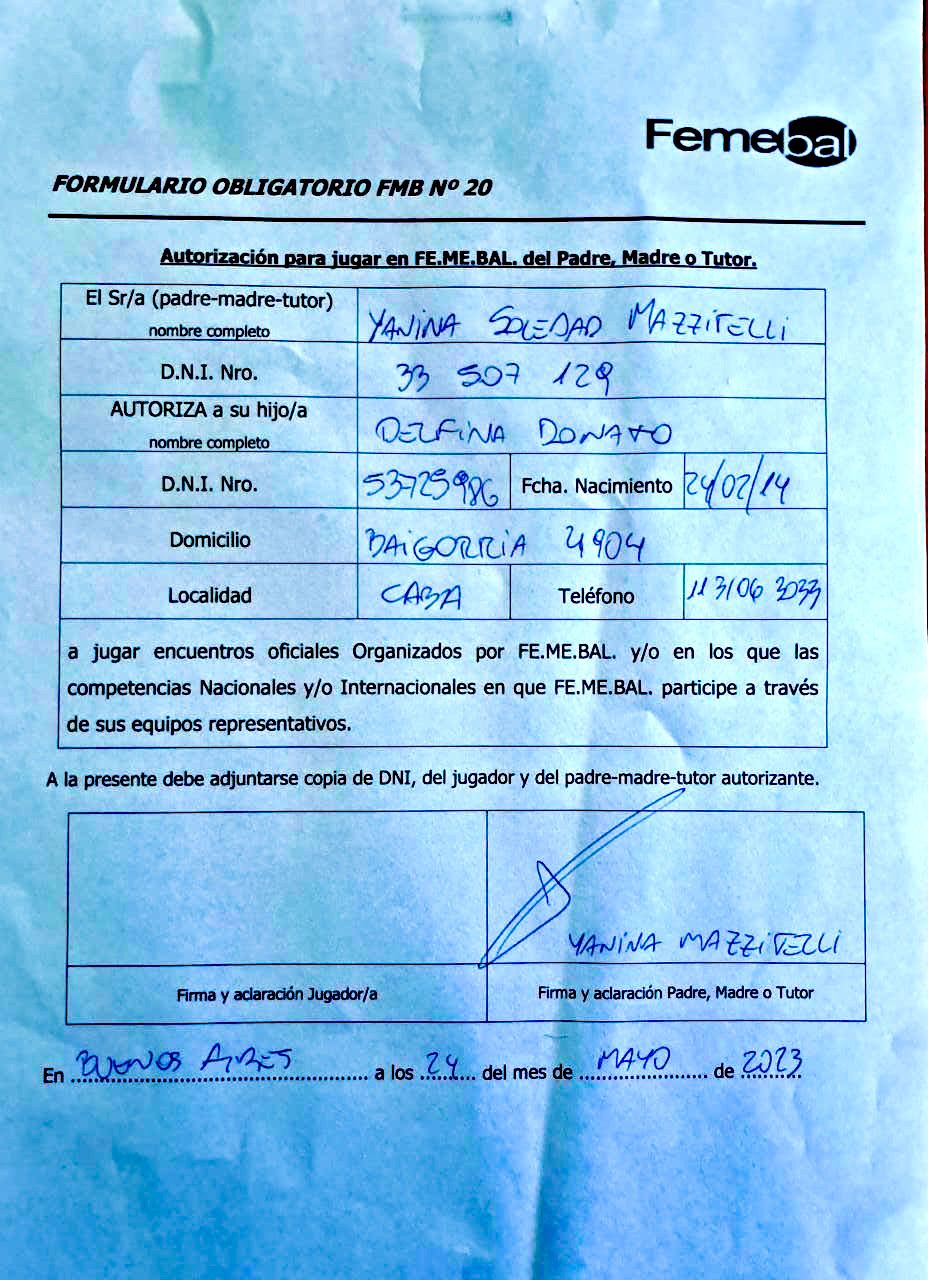 Femebal
FORMULARIO OBLIGATORIO FMB Nº 20
Autorización para jugar en FE.ME.BAL. del Padre, Madre o Tutor.
El Sr/a (padre-madre-tutor)
nombre completo
YANINA SOLEDAD MAZZITELLI
D.N.I. Nro. 33 507 129
AUTORIZA a su hijo/a
nombre completo
DELFINA DONATO
D.N.I. Nro. 53725986 Fcha. Nacimiento 24/02/14
Domicilio BAIGORRIA 4904
Localidad CABA Teléfono 113106 3033
a jugar encuentros oficiales Organizados por FE.ME.BAL. y/o en los que las
competencias Nacionales y/o Internacionales en que FE.ME.BAL. participe a través
de sus equipos representativos.
A la presente debe adjuntarse copia de DNI, del jugador y del padre-madre-tutor autorizante.
YANINA MAZZITELLI
Firma y aclaración Jugador/a Firma y aclaración Padre, Madre o Tutor
En BUENOS AIRES a los 24 del mes de MAYO de 2023